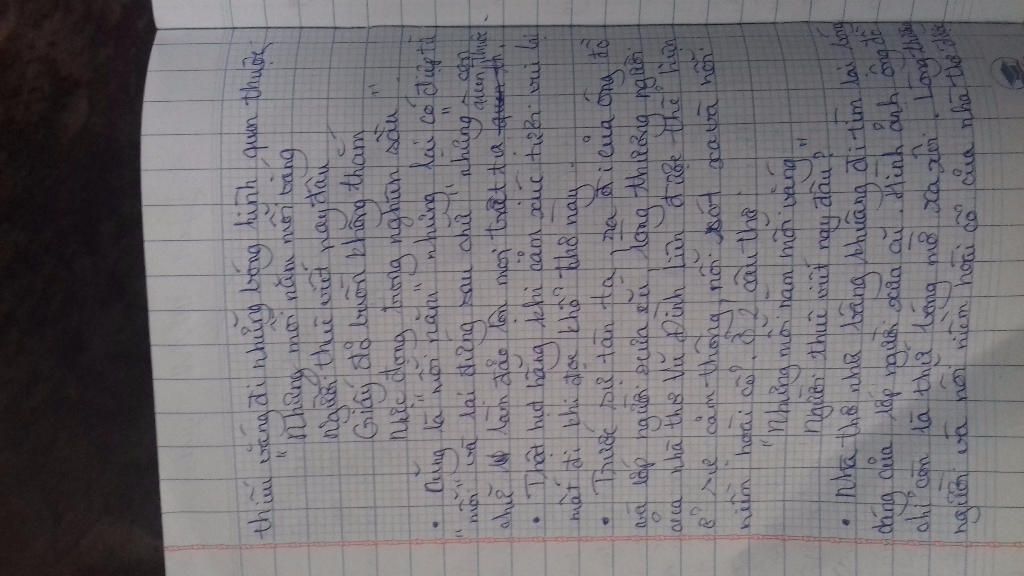 thiếu vắng đi những bóng hình quen thuộc
"Nhưng mỗi năm mỗi vắng
Người thuê viết nay đâu
Giấy đỏ buồn không thắm
Mực đọng trong nghiên sầu"
• Cũng là "mỗi năm" nhưng lại có điệp từ
"mỗi" và lại đứng sau chữ "nhưng" còn
chữ làm đảo lộn mọi trật tự quen thuộc.
• Thật hụt hẫng khi cảm xúc tươi vui lại
mất đi khi đọc khổ thơ này.
• Trước sự tàn tạ, của ông đồ
và lớp người xưa cũ, lòng thương người
của nhà thơ Vũ Đình Liên được thể hiện
ở sự cảm thông, nỗi xót xa và nỗi
niềm hoài cổ. Ở 2 câu thơ
"Nhưng mỗi năm mỗi vắng
Người thuê viết nay đâu?"
• Nhà thơ như bâng khuâng đi tìm lại bóng
dáng của lớp người xưa cũ. Hình ảnh ông đồ
chỉ còn là thứ bóng mờ xa xôi. Lòng thương
người và nỗi niềm hoài cổ của nhà thơ